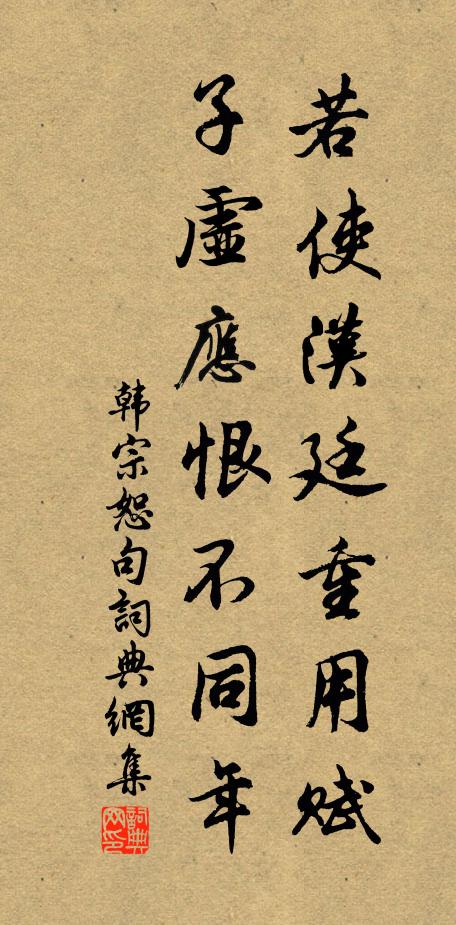 若使漢廷重用賦
子虛應恨不同年
韩宗恕句詞典網集
詞典網印